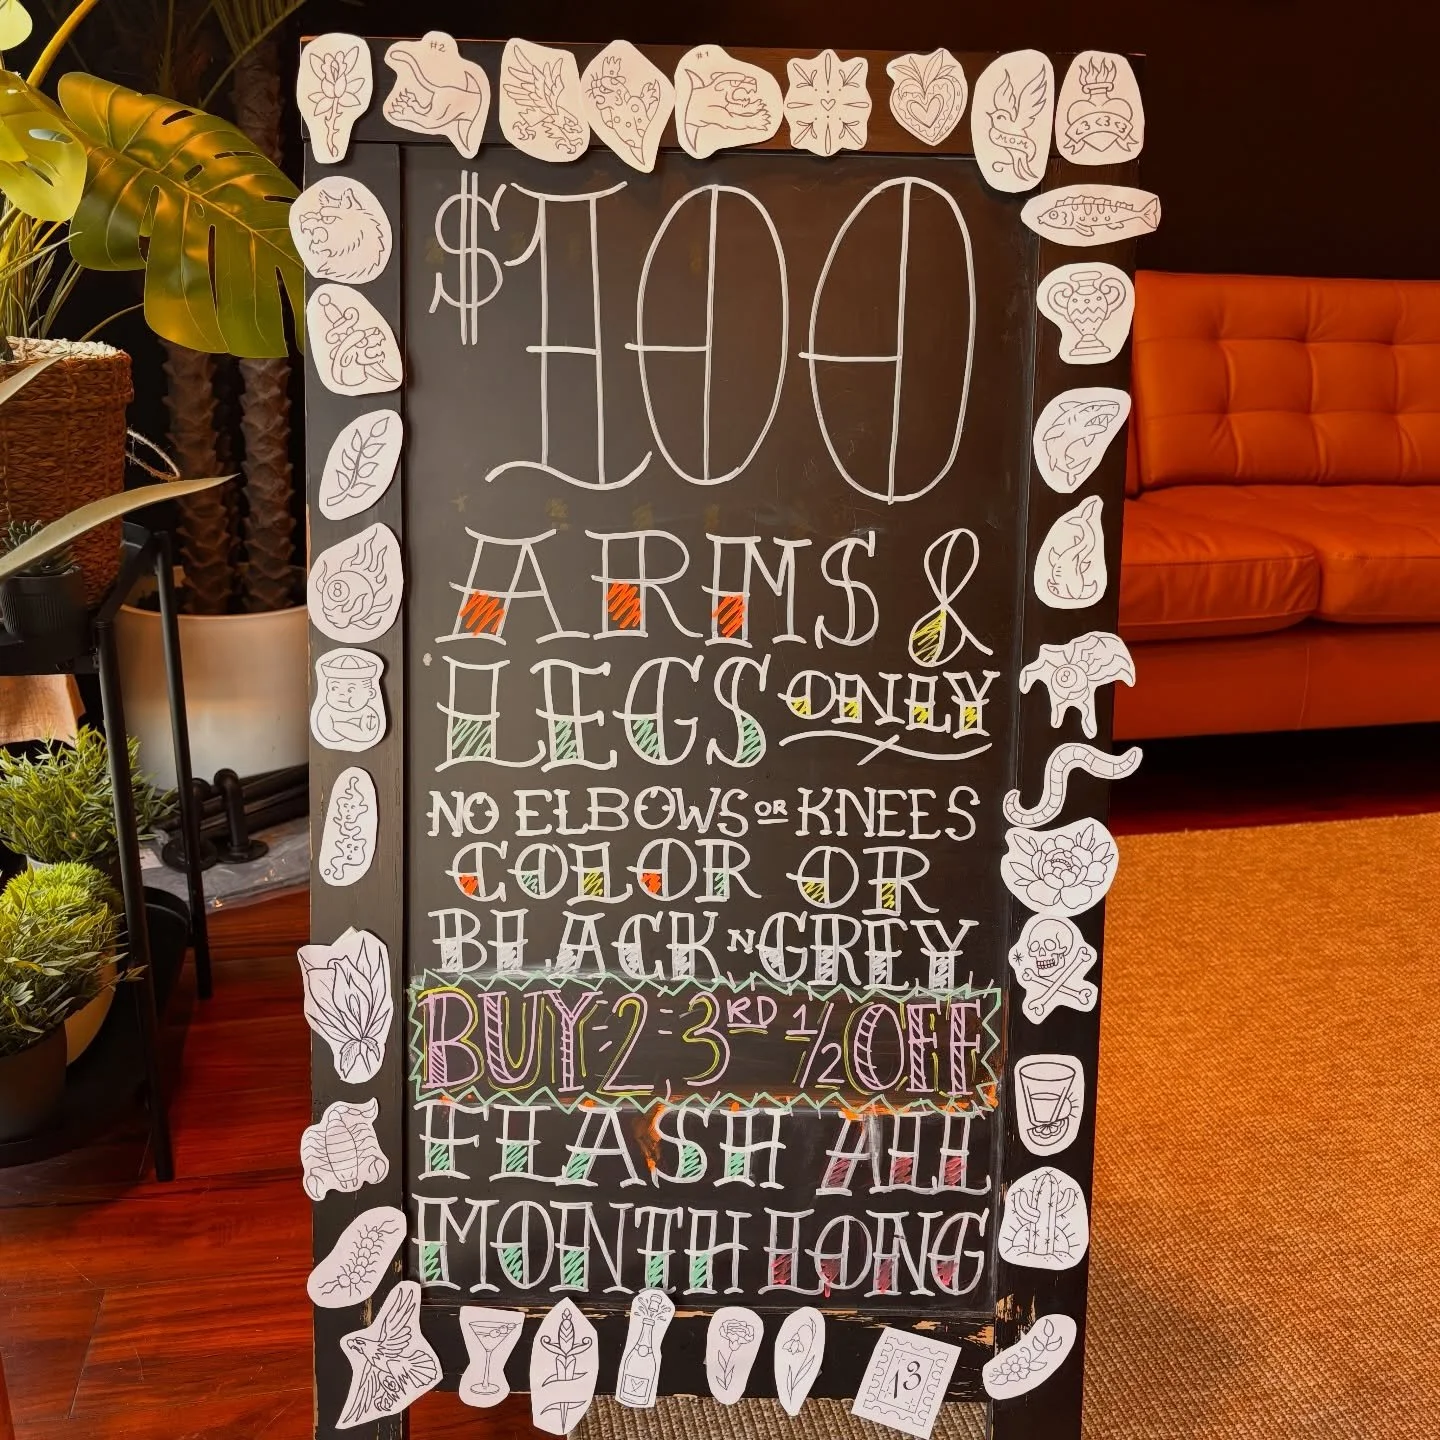 #2
#1
MOM
<3 <3 <3
$100
ARMS &
LEGS ONLY
NO ELBOWS OR KNEES
COLOR OR
BLACK N GREY
BUY 2, 3RD 1/2 OFF
FLASH ALL
MONTH LONG
13